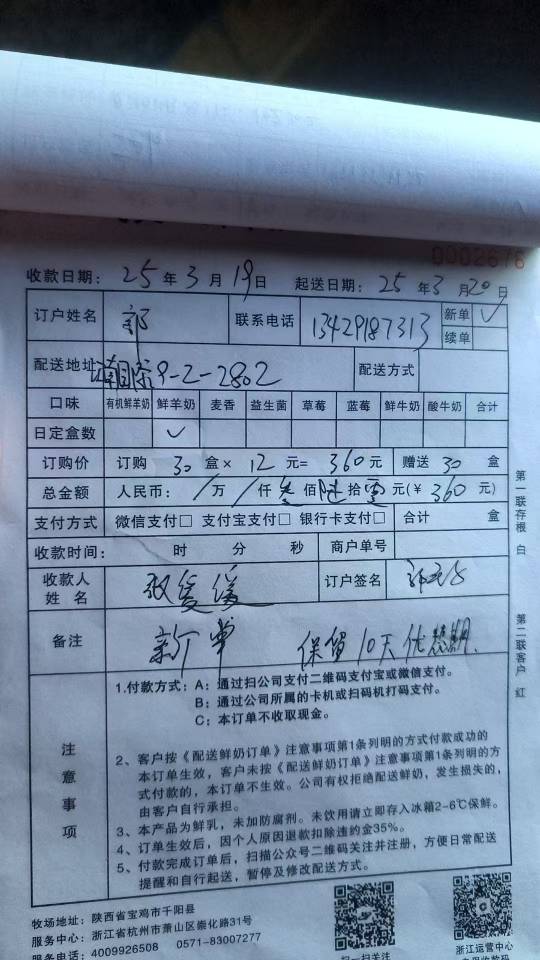 0002676
收款日期：25年3月19日 起送日期：25年3月20日
订户姓名 郭 联系电话 13429187313 新单 ✓
续单
配送地址 9-2-2802 配送方式
口味 有机鲜羊奶 鲜羊奶 麦香 益生菌 草莓 蓝莓 鲜牛奶 酸牛奶 合计
日定盒数 ✓
订购价 订购 30 盒× 12 元= 360元 赠送 30 盒
总金额 人民币： / 万 / 仟 叁 佰 陆 拾 零 元(￥360元)
支付方式 微信支付□ 支付宝支付□ 银行卡支付□ 合计 盒
收款时间： 时 分 秒 商户单号
收款人姓名 张媛媛 订户签名
备注 新厂单 保留10天优惠期.
注意事项
1.付款方式：A；通过扫公司支付二维码支付宝或微信支付。
B；通过公司所属的卡机或扫码机打码支付。
C；本订单不收取现金。
2、客户按《配送鲜奶订单》注意事项第1条列明的方式付款成功的
本订单生效，客户未按《配送鲜奶订单》注意事项第1条列明的方
式付款的，本订单不生效。公司有权拒绝配送鲜奶，发生损失的，
由客户自行承担。
3、本产品为鲜乳，未加防腐剂。未饮用请立即存入冰箱2-6℃保鲜。
4、订单生效后，因个人原因退款扣除违约金35%。
5、付款完成订单后，扫描公众号二维码关注并注册，方便日常配送
提醒和自行起送，暂停及修改配送方式。
第一联存根 白
第二联客户 红
牧场地址：陕西省宝鸡市千阳县
服务中心：浙江省杭州市萧山区崇化路31号
服务电话：4009926508 0571-83007277
扫一扫关注
浙江运营中心